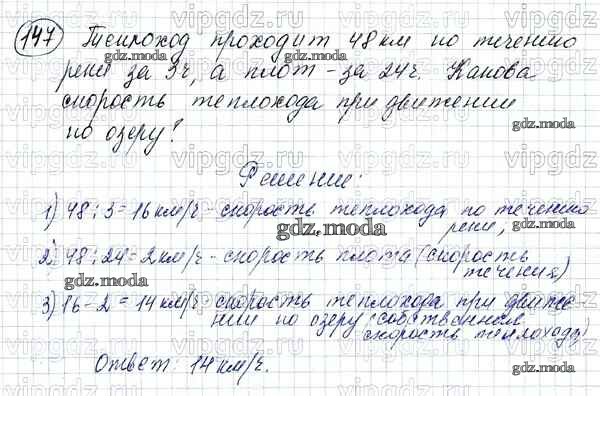 147 Теплоход проходит 48 км по течению
реки за 3ч, а плот - за 24ч. Какова
скорость теплохода при движении
по озеру?
Решение:
1) 48 : 3 = 16 км/ч - скорость теплохода по течению
реки,
2) 48 : 24 = 2 км/ч - скорость плота (скорость
течения)
3) 16 - 2 = 14 км/ч скорость теплохода при движе-
нии по озеру (собственная
скорость теплохода)
Ответ: 14 км/ч.
gdz.moda
gdz.moda
gdz.moda
gdz.moda
gdz.moda
gdz.moda
gdz.moda
gdz.moda
gdz.moda